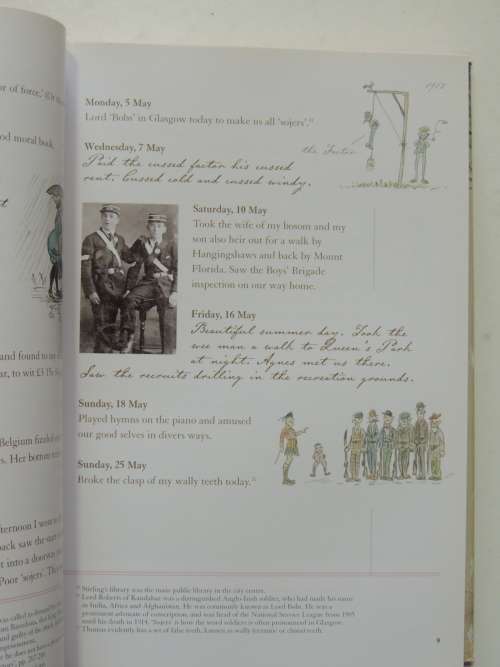 or of force,'
od moral book,
and found to
ar, to wit £3 15s
Belgium
s. Her bottom
fternoon I went
back saw the start
t into a doorway
Poor 'sojers'.
1913
Monday, 5 May
Lord 'Bobs' in Glasgow today to make us all 'sojers'.
Wednesday, 7 May
Paid the cussed factor his cussed
rent. Cussed cold and cussed windy.
the Factor
Saturday, 10 May
Took the wife of my bosom and my
son also heir out for a walk by
Hangingshaws and back by Mount
Florida. Saw the Boys' Brigade
inspection on our way home.
Friday, 16 May
Beautiful summer day. Took the
wee man a walk to Queen's Park
at night. Agnes met us there.
Saw the recruits drilling in the recreation grounds.
Sunday, 18 May
Played hymns on the piano and amused
our good selves in divers ways.
Sunday, 25 May
Broke the clasp of my wally teeth today.
Stirling's library was the main public library in the city centre.
Lord Roberts of Kandahar was a distinguished Anglo-Irish soldier, who had made his name
in India, Africa and Afghanistan. He was commonly known as Lord Bobs. He was a
prominent advocate of conscription, and was head of the National Service League from 1905
until his death in 1914. 'Sojers' is how the word soldiers is often pronounced in Glasgow.
Thomas evidently has a set of false teeth, known as wally (ceramic or china) teeth.
9